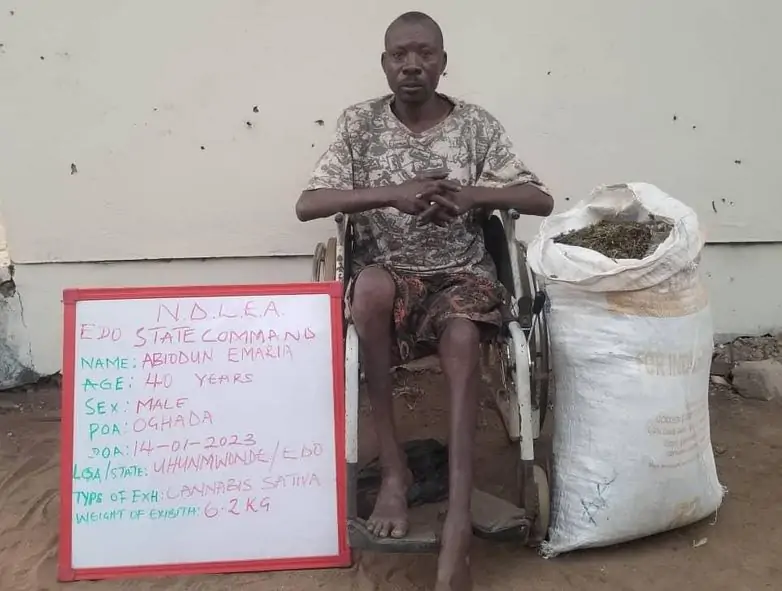 N.D.L.E.A.
EDO STATE COMMAND
NAME: ABIODUN EMARIA
AGE: 40 YEARS
SEX: MALE
POA: OGHADA
DOA: 14-01-2023
LGA/STATE: UHUNMWONDE/EDO
TYPE OF EXH: CANNABIS SATIVA
WEIGHT OF EXIBITH: 6.2KG